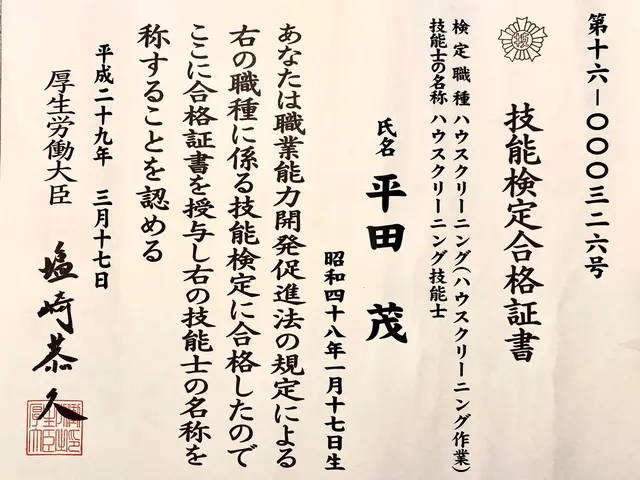 第十六－〇〇〇三二六号
技能検定合格証書
検定職種 ハウスクリーニング(ハウスクリーニング作業)
技能士の名称 ハウスクリーニング技能士
氏名 平田 茂
昭和四十八年一月十七日生
あなたは職業能力開発促進法の規定による
右の職種に係る技能検定に合格したので
ここに合格証書を授与し右の技能士の名称を
称することを認める
平成二十九年 三月十七日
厚生労働大臣 塩崎恭久